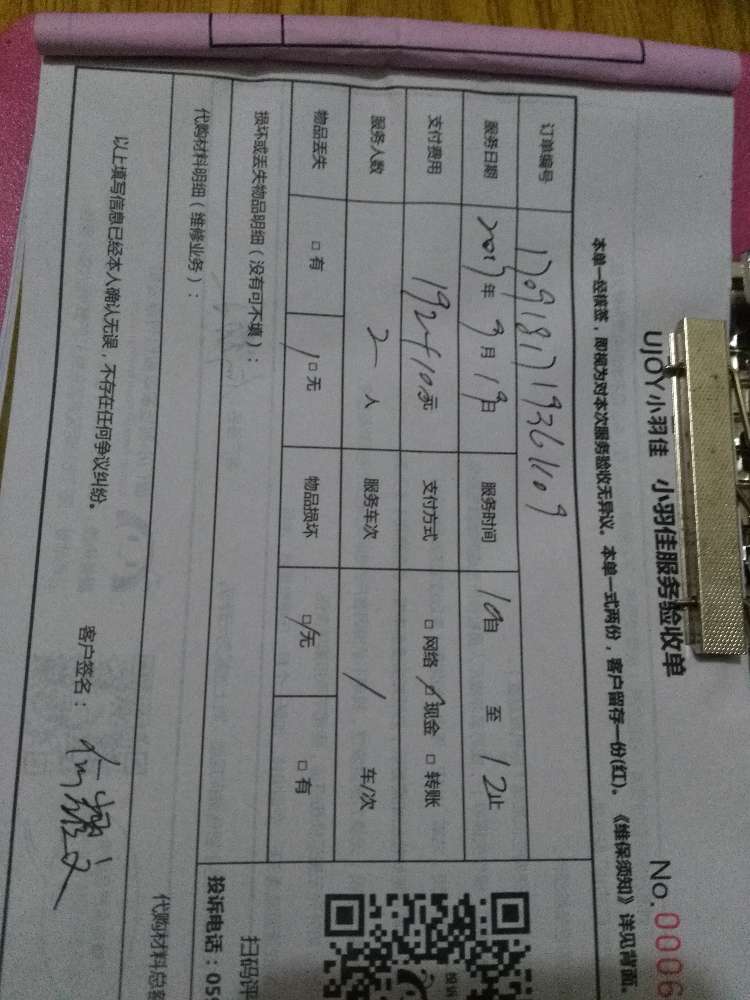 UJOY小羽佳 小羽佳服务验收单
No.0006
本单一经核签，即视为对本次服务验收无异议。本单一式两份，客户留存一份(红)。《维保须知》详见背面。
订单编号
服务日期 2017年9月19日 服务时间 10自 至 12止
支付费用 192+10元 支付方式 □网络 □现金 □转账
服务人数 2人 服务车次 1 车/次
物品丢失 □有 □无 物品损坏 □无 □有
损坏或丢失物品明细（没有可不填）：
代购材料明细（维修业务）：
代购材料总
扫码评
投诉电话：059
以上填写信息已经本人确认无误，不存在任何争议纠纷。
客户签名：